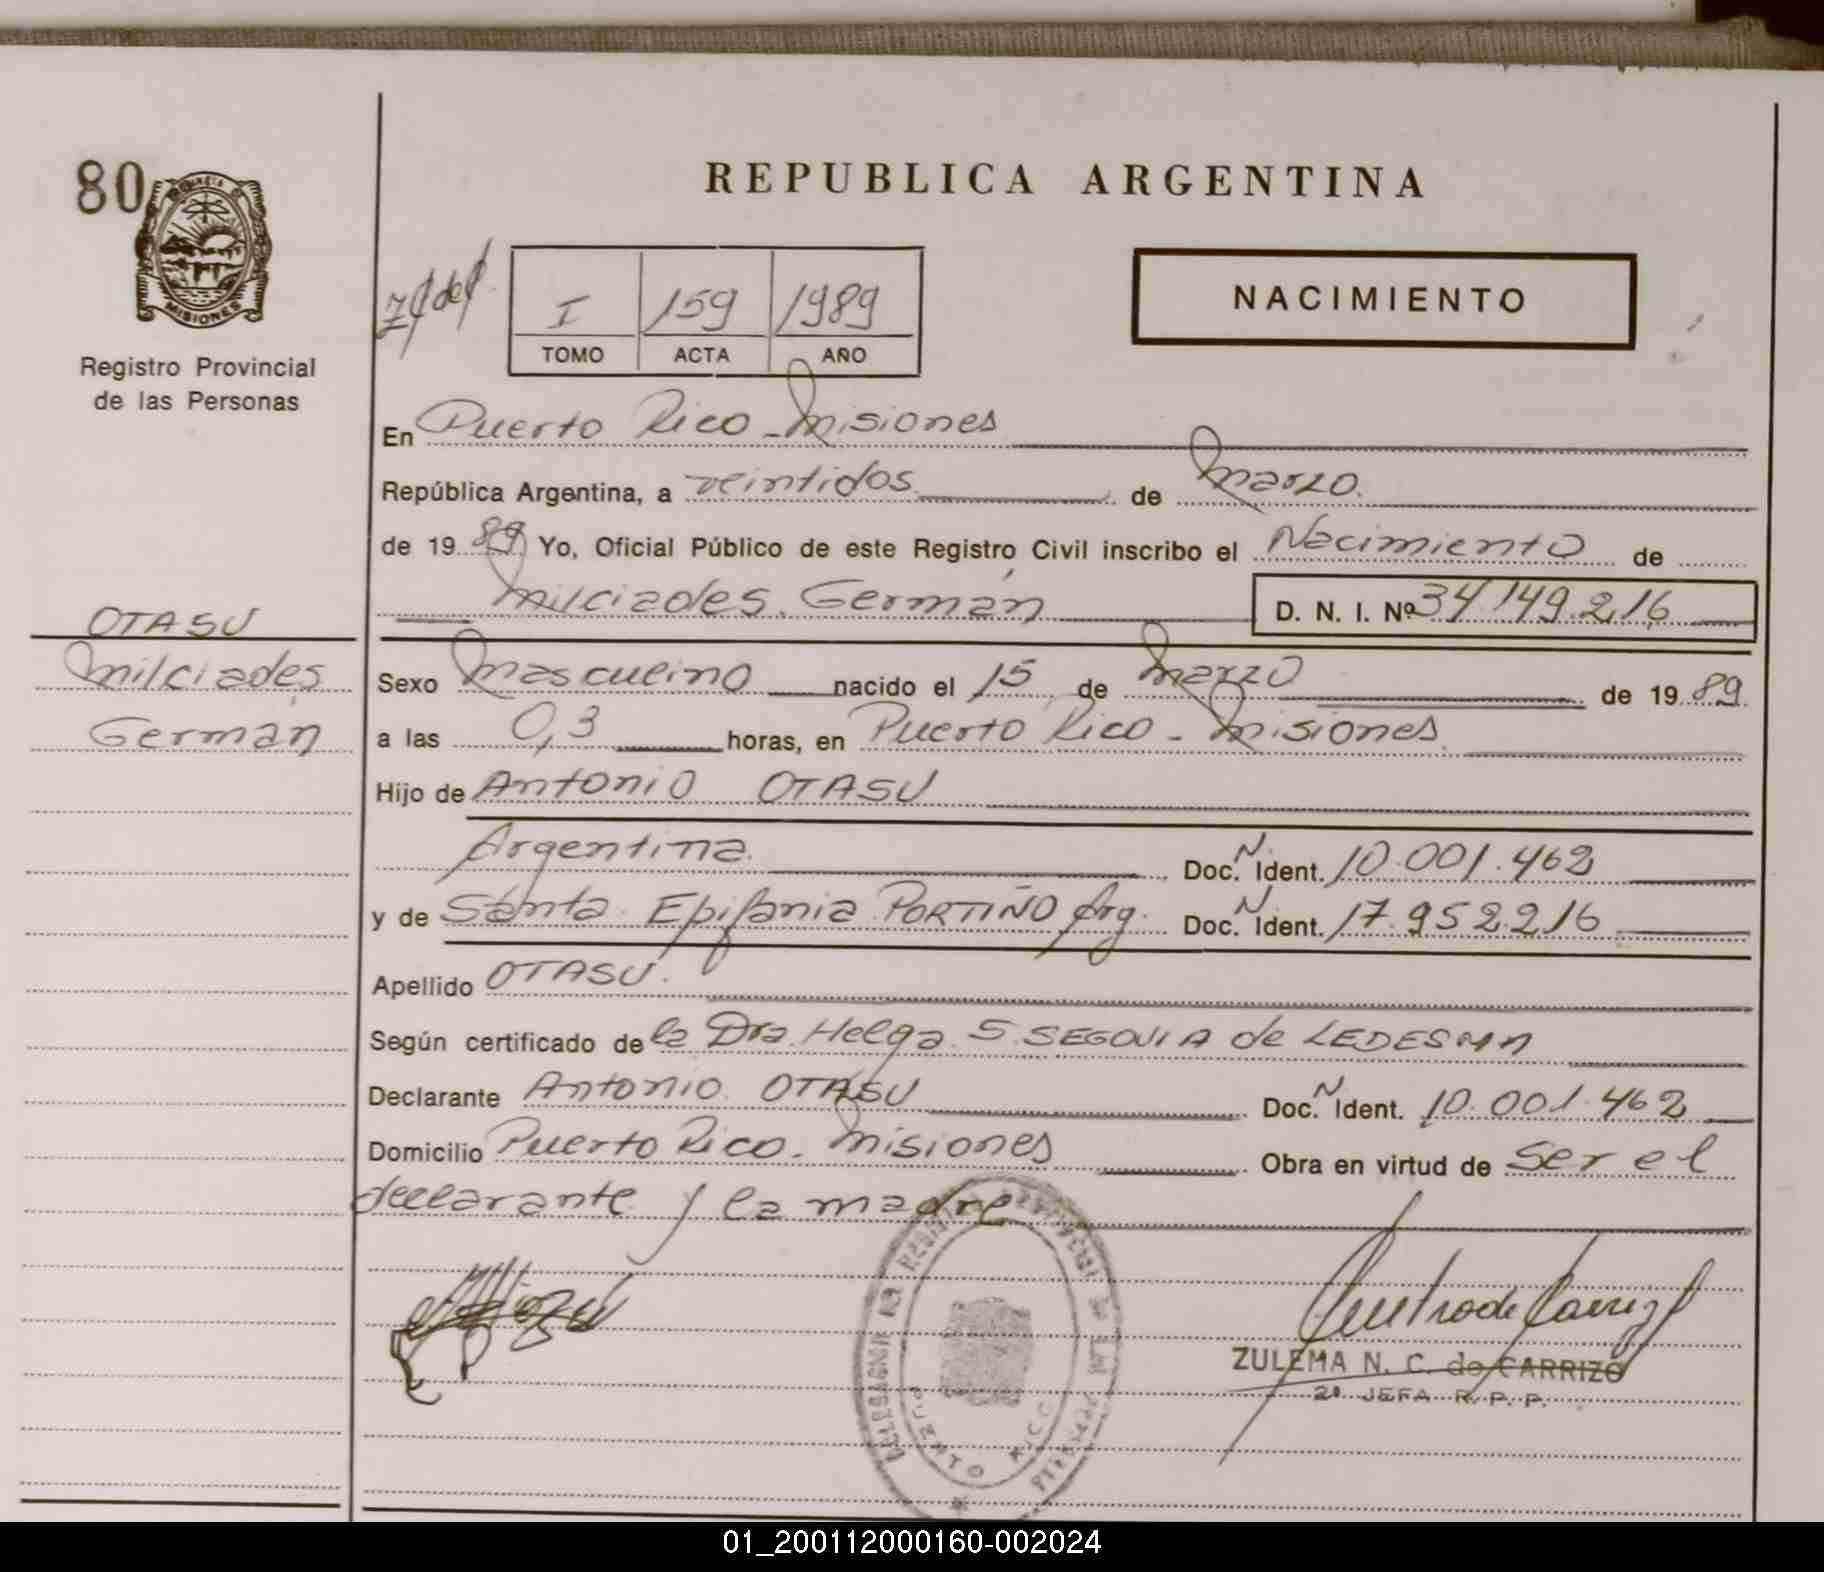 80
REPUBLICA ARGENTINA
MISIONES
Registro Provincial
de las Personas
I 159 1989
TOMO ACTA AÑO
NACIMIENTO
En Puerto Rico - Misiones
República Argentina, a veintidos de Marzo.
de 19 89 Yo, Oficial Público de este Registro Civil inscribo el Nacimiento de
Milciades Germán D. N. I. Nº 34.149.216
OTASU
Milciades
Germán
Sexo Masculino nacido el 15 de Marzo de 19 89
a las 0,3 horas, en Puerto Rico - Misiones
Hijo de Antonio OTASU
Argentina Doc. N. Ident. 10.001.462
y de Santa Epifania PORTIÑO Arg. Doc. N. Ident. 17.952.216
Apellido OTASU.
Según certificado de la Dra. Helga S. SEGOVIA de LEDESMA
Declarante Antonio OTASU Doc. N. Ident. 10.001.462
Domicilio Puerto Rico - Misiones Obra en virtud de ser el
declarante y la madre
ZULEMA N. C. de CARRIZO
2ª JEFA R. P. P.
PUERTO RICO
01_200112000160-002024